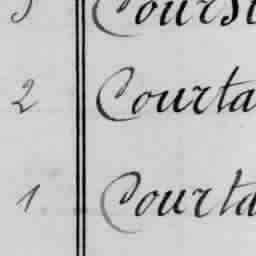 3 Courst
2 Courta
1 Courta